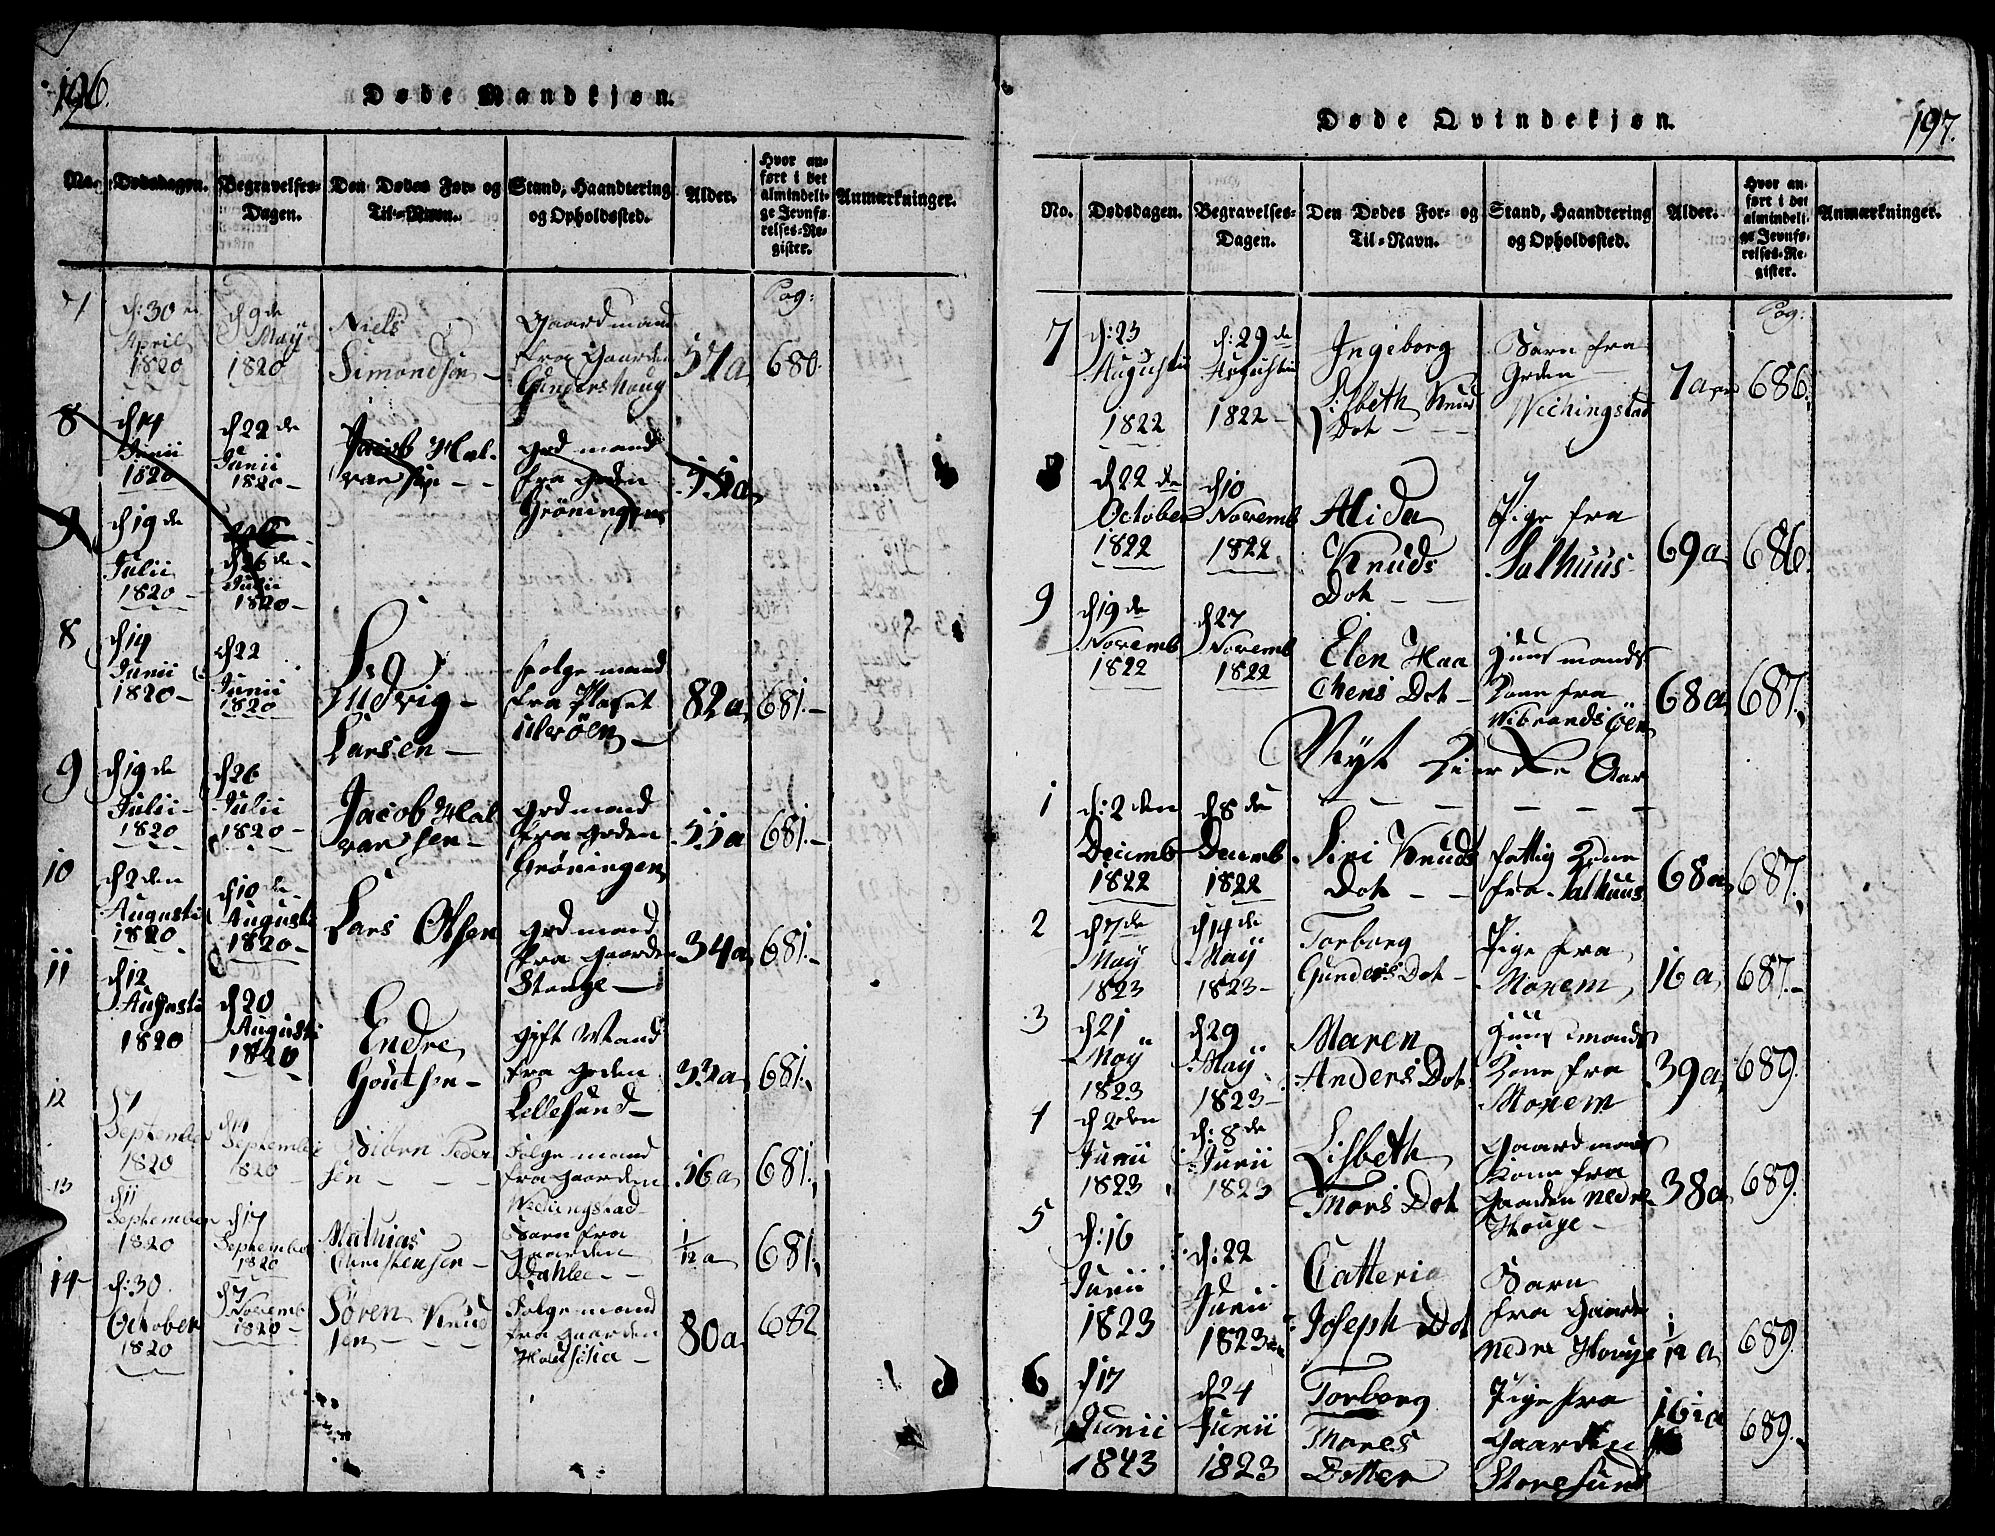 196.
Døde Mandkjøn.
No.
Dødsdagen.
Begravelses-
Dagen.
Den Dødes For- og
Til-Navn.
Stand, Haandtering
og Opholdssted.
Alder.
Hvor an-
ført i det
almindeli-
ge Jevnfø-
relses-Re-
gister.
Anmærkninger.
7
d: 30
April
1820
d 9de
Maÿ
1820
Niels
Simondsen
Gaardmand
fra Gaarden
Gundershaug
57a
Pag:
680.
8
d 14
Junii
1820
d 22de
Junii
1820
Jacob Hal-
varsen
grdmand
fra grden
Grôningen
55a
9
d 19de
Julii
1820
d 26de
Julii
1820
8
d 14
Junii
1820
d 22
Junii
1820
Ludvig
Larsen
folgemand
fra Plaset
82a
681.
9
d 19de
Julii
1820
d 26
Julii
1820
Jacob Hal
varsen
grdmand
fra grden
Grôningen
55a
681.
10
d 2den
Augusti
1820
d 10de
Augusti
1820
Lars Olsen
grdmand
fra Gaarden
Stange
34a
681.
11
d 12
Augusti
1820
d 20
Augusti
1820
Endre
Goutsen
gift Mand
fra grden
Lillesund
33a
681.
12
September
1820
d 14
September
1820
Siôrn Peder
sen
Folgemand
fra Gaarden
Wichingstad
16a
681.
13
d 11
September
1820
d 17
September
1820
Mathias
Christensen
Barn fra
Gaarden
Dahlee
1/12 a
681.
14
d: 30
October
1820
d 7
Novemb
1820
Sôren Knud
sen
Folgemand
fra Gaarden
80a
682
197.
Døde Qvindekjøn.
No.
Dødsdagen.
Begravelses-
Dagen.
Den Dødes For- og
Til-Navn.
Stand, Haandtering
og Opholdssted.
Alder.
Hvor an-
ført i det
almindeli-
ge Jevnfø-
relses-Re-
gister.
Anmærkninger.
7
d: 23
Augusti
1822
d: 29de
Augusti
1822
Ingeborg
Lisbeth Knud
Dot
Barn fra
Grden
Wichingstad
7a
Pag:
686.
8
d 22de
October
1822
d 10
Novemb
1822
Alida
Knuds
Dot
Pige fra
Salhuus
69a
686.
9
d 19de
Novemb
1822
d 27
Novemb
1822
Elen Haa
Chens Dot
Huusmands
Kone fra
Wibrandsôen
68a
687.
Nÿt Kierke Aar
1
d: 2den
Decemb
1822
d 8de
Decemb
1822
Siri Knuds
Dot
fattig Kone
fra Salhuus
68a
687.
2
d 7de
Maÿ
1823
d 14de
Maÿ
1823
Torborg
Gunders Dot
Pige fra
Noxem
16a
687.
3
d 21
Maÿ
1823
d 29
Maÿ
1823
Maren
Anders Dot
Huusmands
Kone fra
Noxem
39a
689.
4
d 2den
Junii
1823
d: 8de
Junii
1823
Lisbeth
Thors Dot
Gaardmands
Kone fra
Gaarden Nedre
Houge
38a
689.
5
d: 16
Junii
1823
d: 22
Junii
1823
Catteria
Joseph Dot
Barn
fra Gaarde
Nedre Houge
1/12 a
689.
6
d 17
Junii
1823
d 24
Junii
1823
Torborg
Thores
Dotter
Pige fra
Gaarden
Storesund
689.